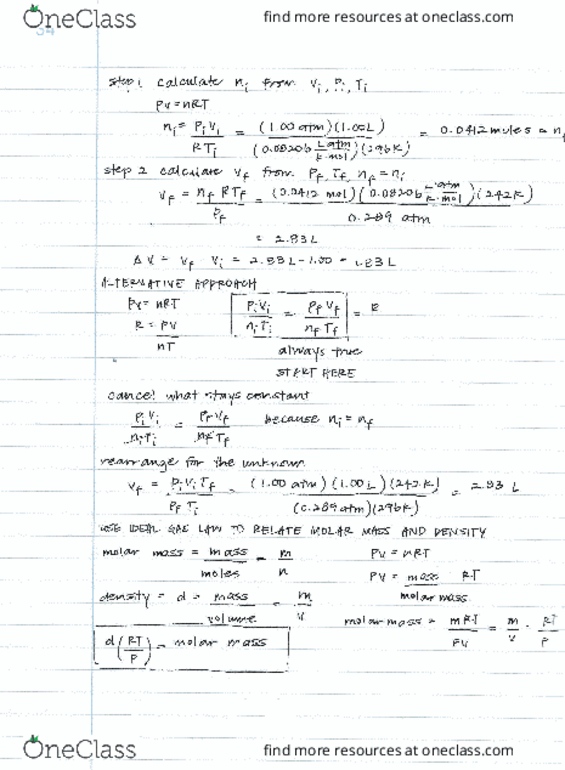 OneClass find more resources at oneclass.com
34
step 1 calculate ni from Vi, Pi, Ti
PV = nRT
ni = PiVi / RTi = (1.00 atm)(1.00L) / (0.08206 L·atm/K·mol)(296K) = 0.0412 moles = nf
step 2 calculate Vf from Pf, Tf, nf = ni
Vf = nf RTf / Pf = (0.0412 mol)(0.08206 L·atm/K·mol)(242K) / 0.289 atm
= 2.83L
ΔV = Vf - Vi = 2.83L - 1.00 = 1.83L
ALTERNATIVE APPROACH
PV = nRT PiVi / niTi = PfVf / nfTf = R
R = PV / nT always true
START HERE
cancel what stays constant
PiVi / niTi = PfVf / nfTf because ni = nf
rearrange for the unknown
Vf = PiViTf / PfTi = (1.00 atm)(1.00 L)(242K) / (0.289 atm)(296K) = 2.83 L
USE IDEAL GAS LAW TO RELATE MOLAR MASS AND DENSITY
molar mass = mass / moles = m / n PV = nRT
PV = mass / molar mass RT
density = d = mass / volume = m / V
molar mass = mRT / PV = m / V · RT / P
d(RT / P) = molar mass
OneClass find more resources at oneclass.com